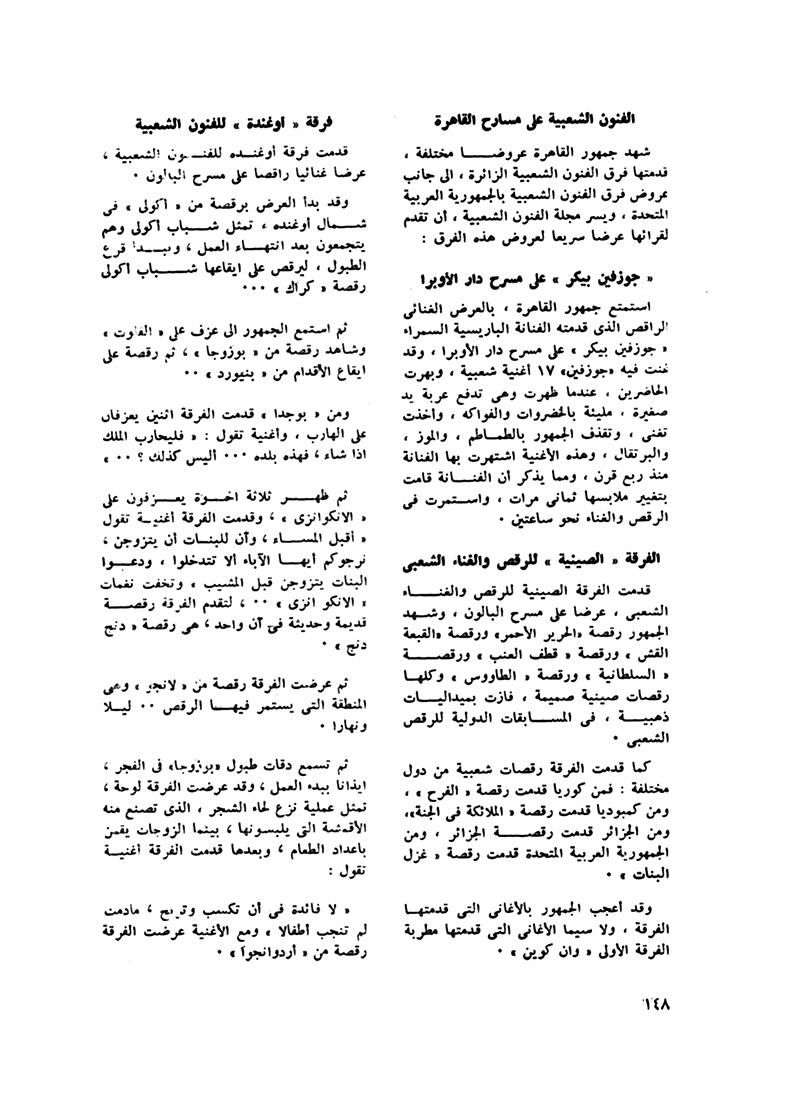 الفنون الشعبية على مسارح القاهرة
شهد جمهور القاهرة عروضا مختلفة ،
قدمتها فرق الفنون الشعبية الزائرة ، الى جانب
عروض فرق الفنون الشعبية بالجمهورية العربية
المتحدة ، ويسر مجلة الفنون الشعبية ، أن تقدم
لقرائها عرضا سريعا لعروض هذه الفرق :
« جوزفين بيكر » على مسرح دار الأوبرا
استمتع جمهور القاهرة ، بالعرض الغنائى
الراقص الذى قدمته الفنانة الباريسية السمراء
« جوزفين بيكر » على مسرح دار الأوبرا ، وقد
غنت فيه «جوزفين» ١٧ أغنية شعبية ، وبهرت
الحاضرين ، عندما ظهرت وهى تدفع عربة يد
صغيرة ، مليئة بالخضروات والفواكه ، وأخذت
تغنى ، وتقذف الجمهور بالطماطم ، والموز ،
والبرتقال ، وهذه الأغنية اشتهرت بها الفنانة
منذ ربع قرن ، ومما يذكر أن الفنانة قامت
بتغيير ملابسها ثمانى مرات ، واستمرت فى
الرقص والغناء نحو ساعتين ٠
الفرقة « الصينية » للرقص والغناء الشعبى
قدمت الفرقة الصينية للرقص والغناء
الشعبى ، عرضا على مسرح البالون ، وشهد
الجمهور رقصة «الحرير الأحمر» ورقصة «القبعة
القش » ورقصة « قطف العنب » ورقصة
« السلطانية » ورقصة « الطاووس » وكلها
رقصات صينية صميمة ، فازت بميداليات
ذهبية ، فى المسابقات الدولية للرقص
الشعبى ٠
كما قدمت الفرقة رقصات شعبية من دول
مختلفة : فمن كوريا قدمت رقصة « الفرح » ،
ومن كمبوديا قدمت رقصة « الملائكة فى الجنة»،
ومن الجزائر قدمت رقصة الجزائر ، ومن
الجمهورية العربية المتحدة قدمت رقصة « غزل
البنات » ٠
وقد أعجب الجمهور بالأغانى التى قدمتها
الفرقة ، ولا سيما الأغانى التى قدمتها مطربة
الفرقة الأولى « وان كوين » ٠
فرقة « أوغندة » للفنون الشعبية
قدمت فرقة أوغنده للفنون الشعبية ،
عرضا غنائيا راقصا على مسرح البالون ٠
وقد بدأ العرض برقصة من « اكولى » فى
شمال أوغنده ، تمثل شباب أكولى وهم
يتجمعون بعد انتهاء العمل ، ويبدأ قرع
الطبول ، ليرقص على ايقاعها شباب أكولى
رقصة « كراك » ٠٠٠
ثم استمع الجمهور الى عزف على « الفلوت »
وشاهد رقصة من « بوزوجا » ، ثم رقصة على
ايقاع الأقدام من « بنيورد » ٠٠
ومن « بوجدا » قدمت الفرقة اثنين يعزفان
على الهارب ، وأغنية تقول : « فليحارب الملك
اذا شاء ، فهذه بلده ٠٠٠ أليس كذلك ؟ ٠٠ »
ثم ظهر ثلاثة اخوة يعزفون على
« الانكوانزى » ، وقدمت الفرقة أغنية تقول
« أقبل المساء ، وآن للبنات أن يتزوجن ،
نرجوكم أيها الآباء ألا تتدخلوا ، ودعوا
البنات يتزوجن قبل المشيب » وتخفت نغمات
« الانكو انزى » ٠٠ ، لتقدم الفرقة رقصة
قديمة وحديثة فى آن واحد ، هى رقصة « دنج
دنج » ٠
ثم عرضت الفرقة رقصة من « لانجو » وهى
المنطقة التى يستمر فيها الرقص ٠٠ ليلا
ونهارا ٠
ثم تسمع دقات طبول «بوزوجا» فى الفجر ،
ايذانا ببدء العمل ، وقد عرضت الفرقة لوحة ،
تمثل عملية نزع لحاء الشجر ، الذى تصنع منه
الأقمشة التى يلبسونها ، بينما الزوجات يقمن
باعداد الطعام ، وبعدها قدمت الفرقة أغنية
تقول :
« لا فائدة فى أن تكسب وتربح ، مادمت
لم تنجب أطفالا » ومع الأغنية عرضت الفرقة
رقصة من « أردوانجوا » ٠
١٤٨